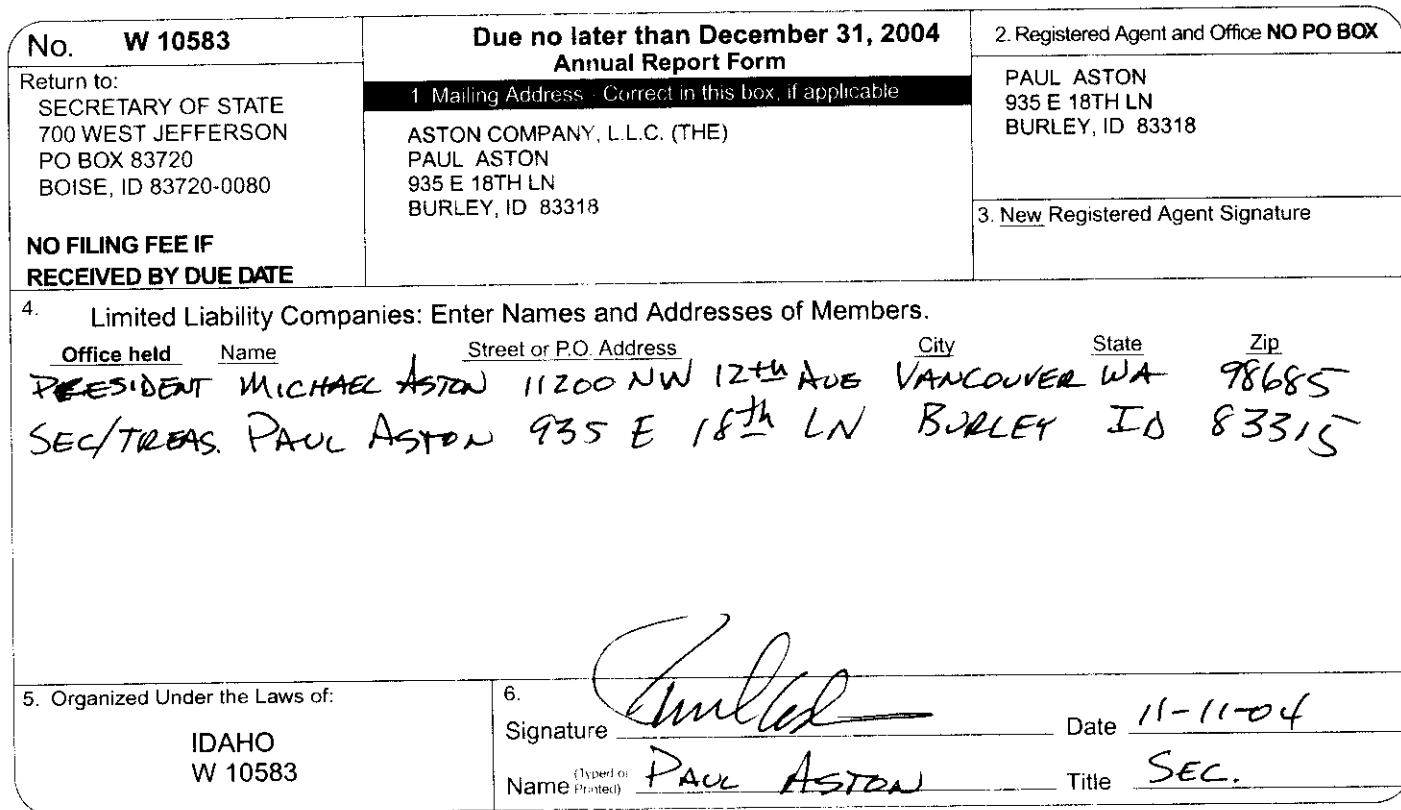 No. W 10583
Return to:
SECRETARY OF STATE
700 WEST JEFFERSON
PO BOX 83720
BOISE, ID 83720-0080
NO FILING FEE IF
RECEIVED BY DUE DATE
Due no later than December 31, 2004
Annual Report Form
1 Mailing Address - Correct in this box, if applicable
ASTON COMPANY, L.L.C. (THE)
PAUL ASTON
935 E 18TH LN
BURLEY, ID 83318
2. Registered Agent and Office NO PO BOX
PAUL ASTON
935 E 18TH LN
BURLEY, ID 83318
3. New Registered Agent Signature
4. Limited Liability Companies: Enter Names and Addresses of Members.
Office held Name Street or P.O. Address City State Zip
PRESIDENT MICHAEL ASTON 11200 NW 12th AVE VANCOUVER WA 98685
SEC/TREAS. PAUL ASTON 935 E 18th LN BURLEY ID 83315
5. Organized Under the Laws of:
IDAHO
W 10583
6.
Signature Date 11-11-04
Name (Typed or Printed) PAUL ASTON Title SEC.